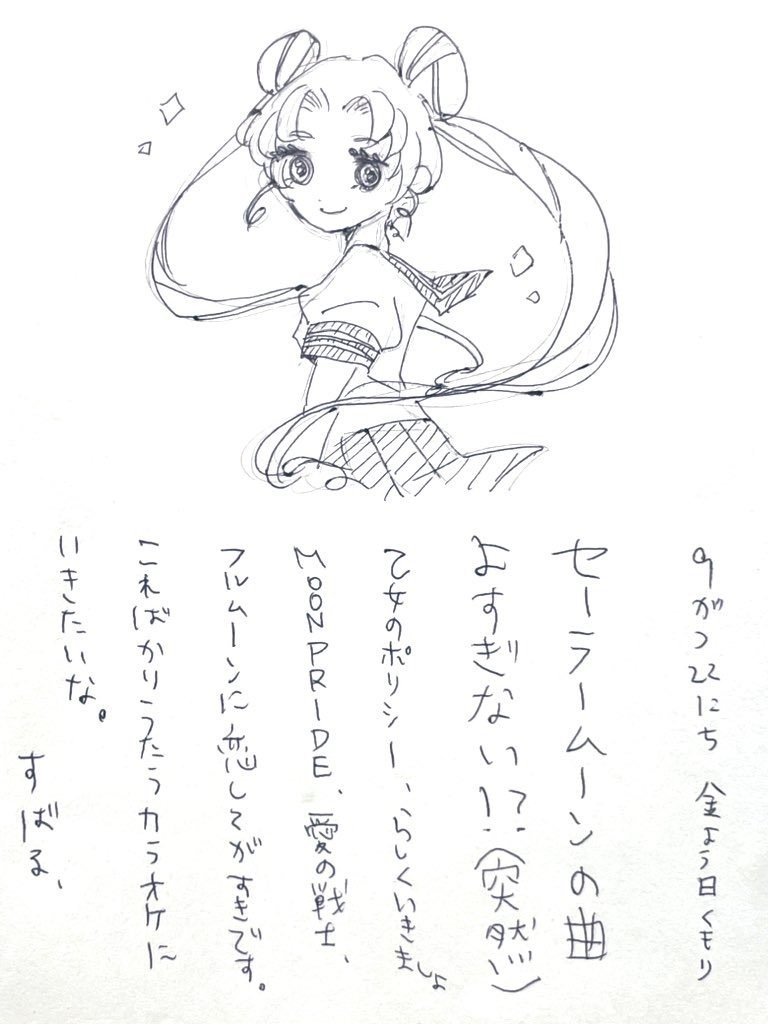 9がつ22にち 金よう日くもり
セーラームーンの曲
よすぎない!?(突然)
乙女のポリシー、らしくいきましょ
MOONPRIDE、愛の戦士、
フルムーンに恋してがすきです。
こればかりうたうカラオケに
いきたいな。
すばる、